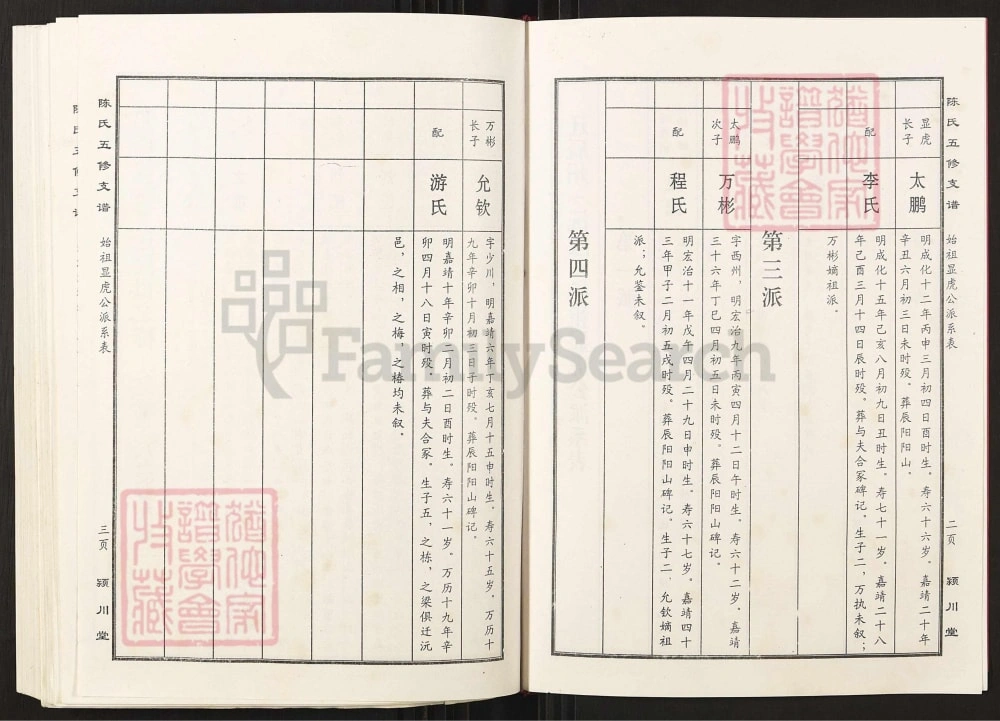 陈氏五修支谱
始祖显虎公派系表
二页
颍川堂
显虎
长子
太鹏
明成化十二年丙申三月初四日酉时生。寿六十六岁。嘉靖二十年
辛丑六月初三日未时殁。葬辰阳阳山。
配
李氏
明成化十五年己亥八月初九日丑时生。寿七十一岁。嘉靖二十八
年己酉三月十四日辰时殁。葬与夫合冢碑记。生子二，万执未叙；
万彬嫡祖派。
第三派
太鹏
次子
万彬
字西州，明宏治九年丙寅四月十二日午时生。寿六十二岁。嘉靖
三十六年丁巳四月初五日未时殁。葬辰阳阳山碑记。
配
程氏
明宏治十一年戊午四月二十九日申时生。寿六十七岁。嘉靖四十
三年甲子二月初五戌时殁。葬辰阳阳山碑记。生子二，允钦嫡祖
派；允鉴未叙。
第四派
万彬
长子
允钦
字少川，明嘉靖六年丁亥七月十五申时生。寿六十五岁。万历十
九年辛卯十月初三日子时殁。葬辰阳阳山碑记。
配
游氏
明嘉靖十年辛卯二月初二日酉时生。寿六十一岁。万历十九年辛
卯四月十八日寅时殁。葬与夫合冢。生子五，之栋，之梁俱迁沅
邑，之相，之梅，之椿均未叙。
陈氏五修支谱
始祖显虎公派系表
三页
颍川堂
FamilySearch